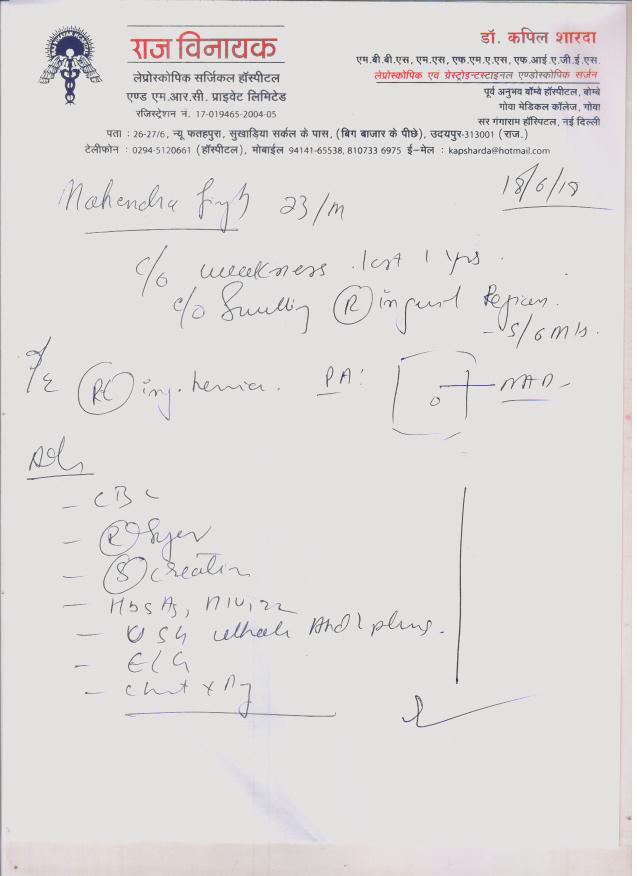 राज विनायक
लेप्रोस्कोपिक सर्जिकल हॉस्पीटल
एण्ड एम.आर.सी. प्राइवेट लिमिटेड
रजिस्ट्रेशन नं. 17-019465-2004-05
डॉ. कपिल शारदा
एम.बी.बी.एस, एम.एस, एफ.एम.ए.एस, एफ.आई.ए.जी.ई.एस.
लेप्रोस्कोपिक एवं ग्रेस्ट्रोइन्टस्टाइनल एण्डोस्कोपिक सर्जन
पूर्व अनुभव बॉम्बे हॉस्पीटल, बोम्बे
गोवा मेडिकल कॉलेज, गोवा
सर गंगाराम हॉस्पिटल, नई दिल्ली
पता : 26-27/6, न्यू फतहपुरा, सुखाड़िया सर्कल के पास, (बिग बाजार के पीछे), उदयपुर-313001 (राज.)
टेलीफोन : 0294-5120661 (हॉस्पीटल), मोबाईल 94141-65538, 810733 6975 ई-मेल : kapsharda@hotmail.com
18/6/18
Mahendra Singh 23/M
c/o weakness last 1 yrs.
c/o Swelling (R) inguinal Region.
- 5/6 mts.
O/E (Rt) ing. hernia. PA: NAD
Adv
- CBC
- (R) Sugar
- (S) creatin
- HbsAg, HIV, 
- USG whole Abd & pelvis.
- ECG
- chest x Ray